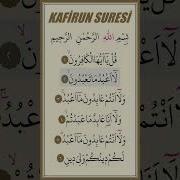 KAFİRUN SURESİ
بِسْمِ اللّٰهِ الرَّحْمٰنِ الرَّحِيمِ
قُلْ يَٓا اَيُّهَا الْكَافِرُونَ
لَٓا اَعْبُدُ مَا تَعْبُدُونَ
وَلَٓا اَنْتُمْ عَابِدُونَ مَٓا اَعْبُدُ
وَلَٓا اَنَا۬ عَابِدٌ مَا عَبَدْتُمْ
وَلَٓا اَنْتُمْ عَابِدُونَ مَٓا اَعْبُدُ
لَكُمْ دِينُكُمْ وَلِيَ دِينِ